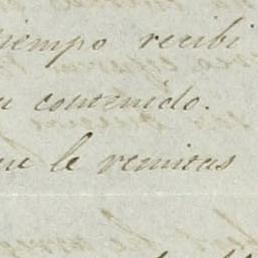 tiempo recibi
su contenido.
que le remitas